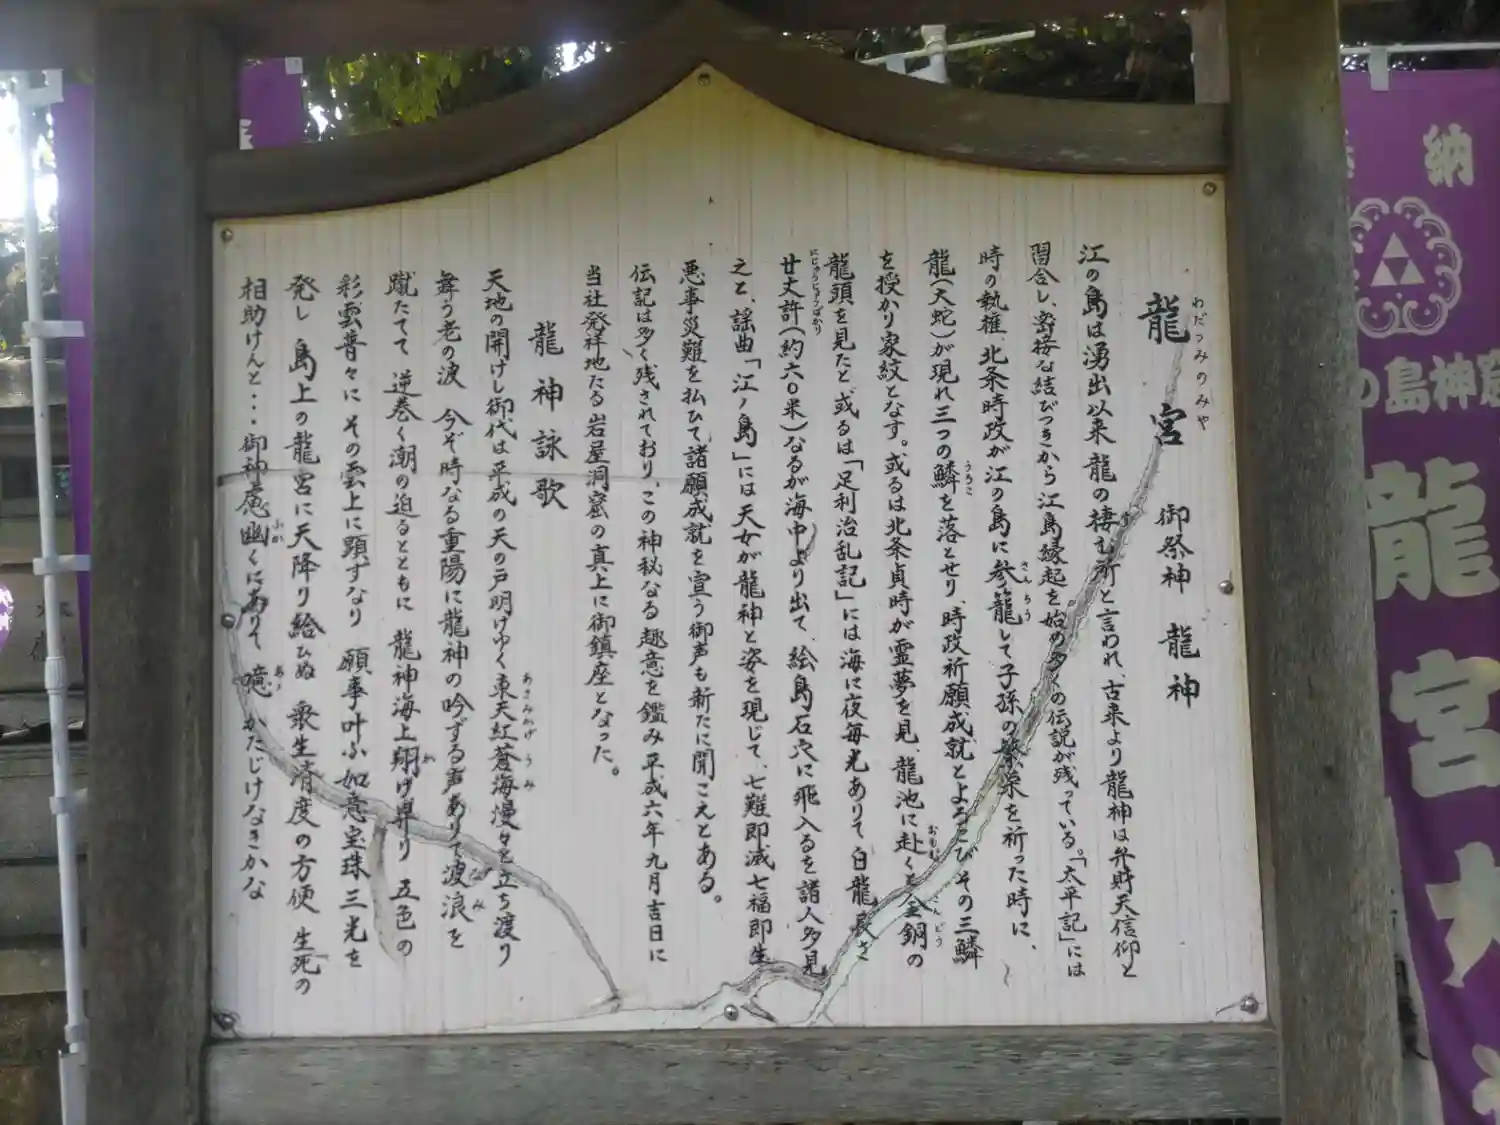 龍宮 御祭神 龍神
わだつみのみや
江の島は湧出以来龍の棲む所と言われ、古来より龍神は弁財天信仰と
習合し、密接な結びつきから江島縁起を始め多くの伝説が残っている。「太平記」には
時の執権、北条時政が江の島に参籠して子孫の繁栄を祈った時に、
さんろう
龍(大蛇)が現れ三つの鱗を落とせり、時政祈願成就とよろこびその三鱗
うろこ
を授かり家紋となす。或るは北条貞時が霊夢を見、龍池に赴く不金銅の
おもむ
こんどう
龍頭を見たと、或るは「足利治乱記」には海に夜毎光ありて白龍長さ
廿丈許(約六〇米)なるが海中より出て、絵島石穴に飛入るを諸人多見
にじゅうじょうばかり
之と、謡曲「江ノ島」には天女が龍神と姿を現じて、七難即滅七福即生
悪事災難を払ひて諸願成就を宣う御声も新たに聞こえとある。
伝記は多く残されており、この神秘なる趣意を鑑み平成六年九月吉日に
当社発祥地たる岩屋洞窟の真上に御鎮座となった。
龍神詠歌
天地の開けし御代は平成の天の戸明けゆく東天紅蒼海熳々と立ち渡り
あさみかげ うみ
舞う老の波 今ぞ時なる重陽に龍神の吟ずる声ありて波浪を
なみ
蹴たてて 逆巻く潮の迫るとともに 龍神海上翔け昇り 五色の
彩雲普々に その雲上に顕すなり 願事叶ふ如意宝珠 三光を
発し 島上の龍宮に天降り給ひぬ 衆生済度の方便 生死の
相助けんと・・・御神慮幽くにありて 噫 かたじけなきかな
ふか
あゝ
奉納
の島神
龍宮大